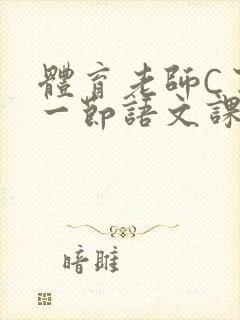 體育老師C了
一節語文課
暗雎